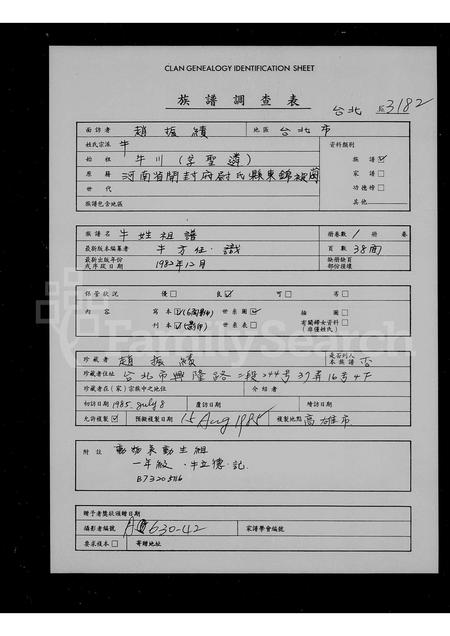 CLAN GENEALOGY IDENTIFICATION SHEET
族譜調查表
台北 3182
面訪者 趙振績 地區 台北市
姓氏宗派 牛 資料類別
始祖 牛川(字聖遴) 族譜☑
原籍 河南省開封府尉氏縣東錦被崗 家譜□
世代 功德榜□
族譜包含地區 其他
族譜名 牛姓祖譜 冊卷數 1 冊 卷
最新版本編纂者 牛方任·識 頁數 38面
最新出版年份或序跋日期 1982年12月 缺冊缺頁部份損壞
保管狀況 優□ 良☑ 可□ 劣□
內容 寫本☑ 世系圖☑ 插圖□
刊本☑(影印) 世系表□ 有關婦女資料(非僅姓氏)□
珍藏者 趙振績 是否列入本族譜 否
珍藏者住址 台北市興隆路二段244号37弄16号4F
珍藏者在(家)宗族中之地位 介紹者
初訪日期 1985. July 8 覆訪日期 續訪日期
允許複製☑ 預擬複製日期 15 Aug 1985 複製地點 高雄市
附註 動物系動生組
一年級 牛立德·記
B7320516
贈予者獎狀頒贈日期
攝影者編號 630-42 家譜學會編號
要求複本□ 寄贈地址
FamilySearch